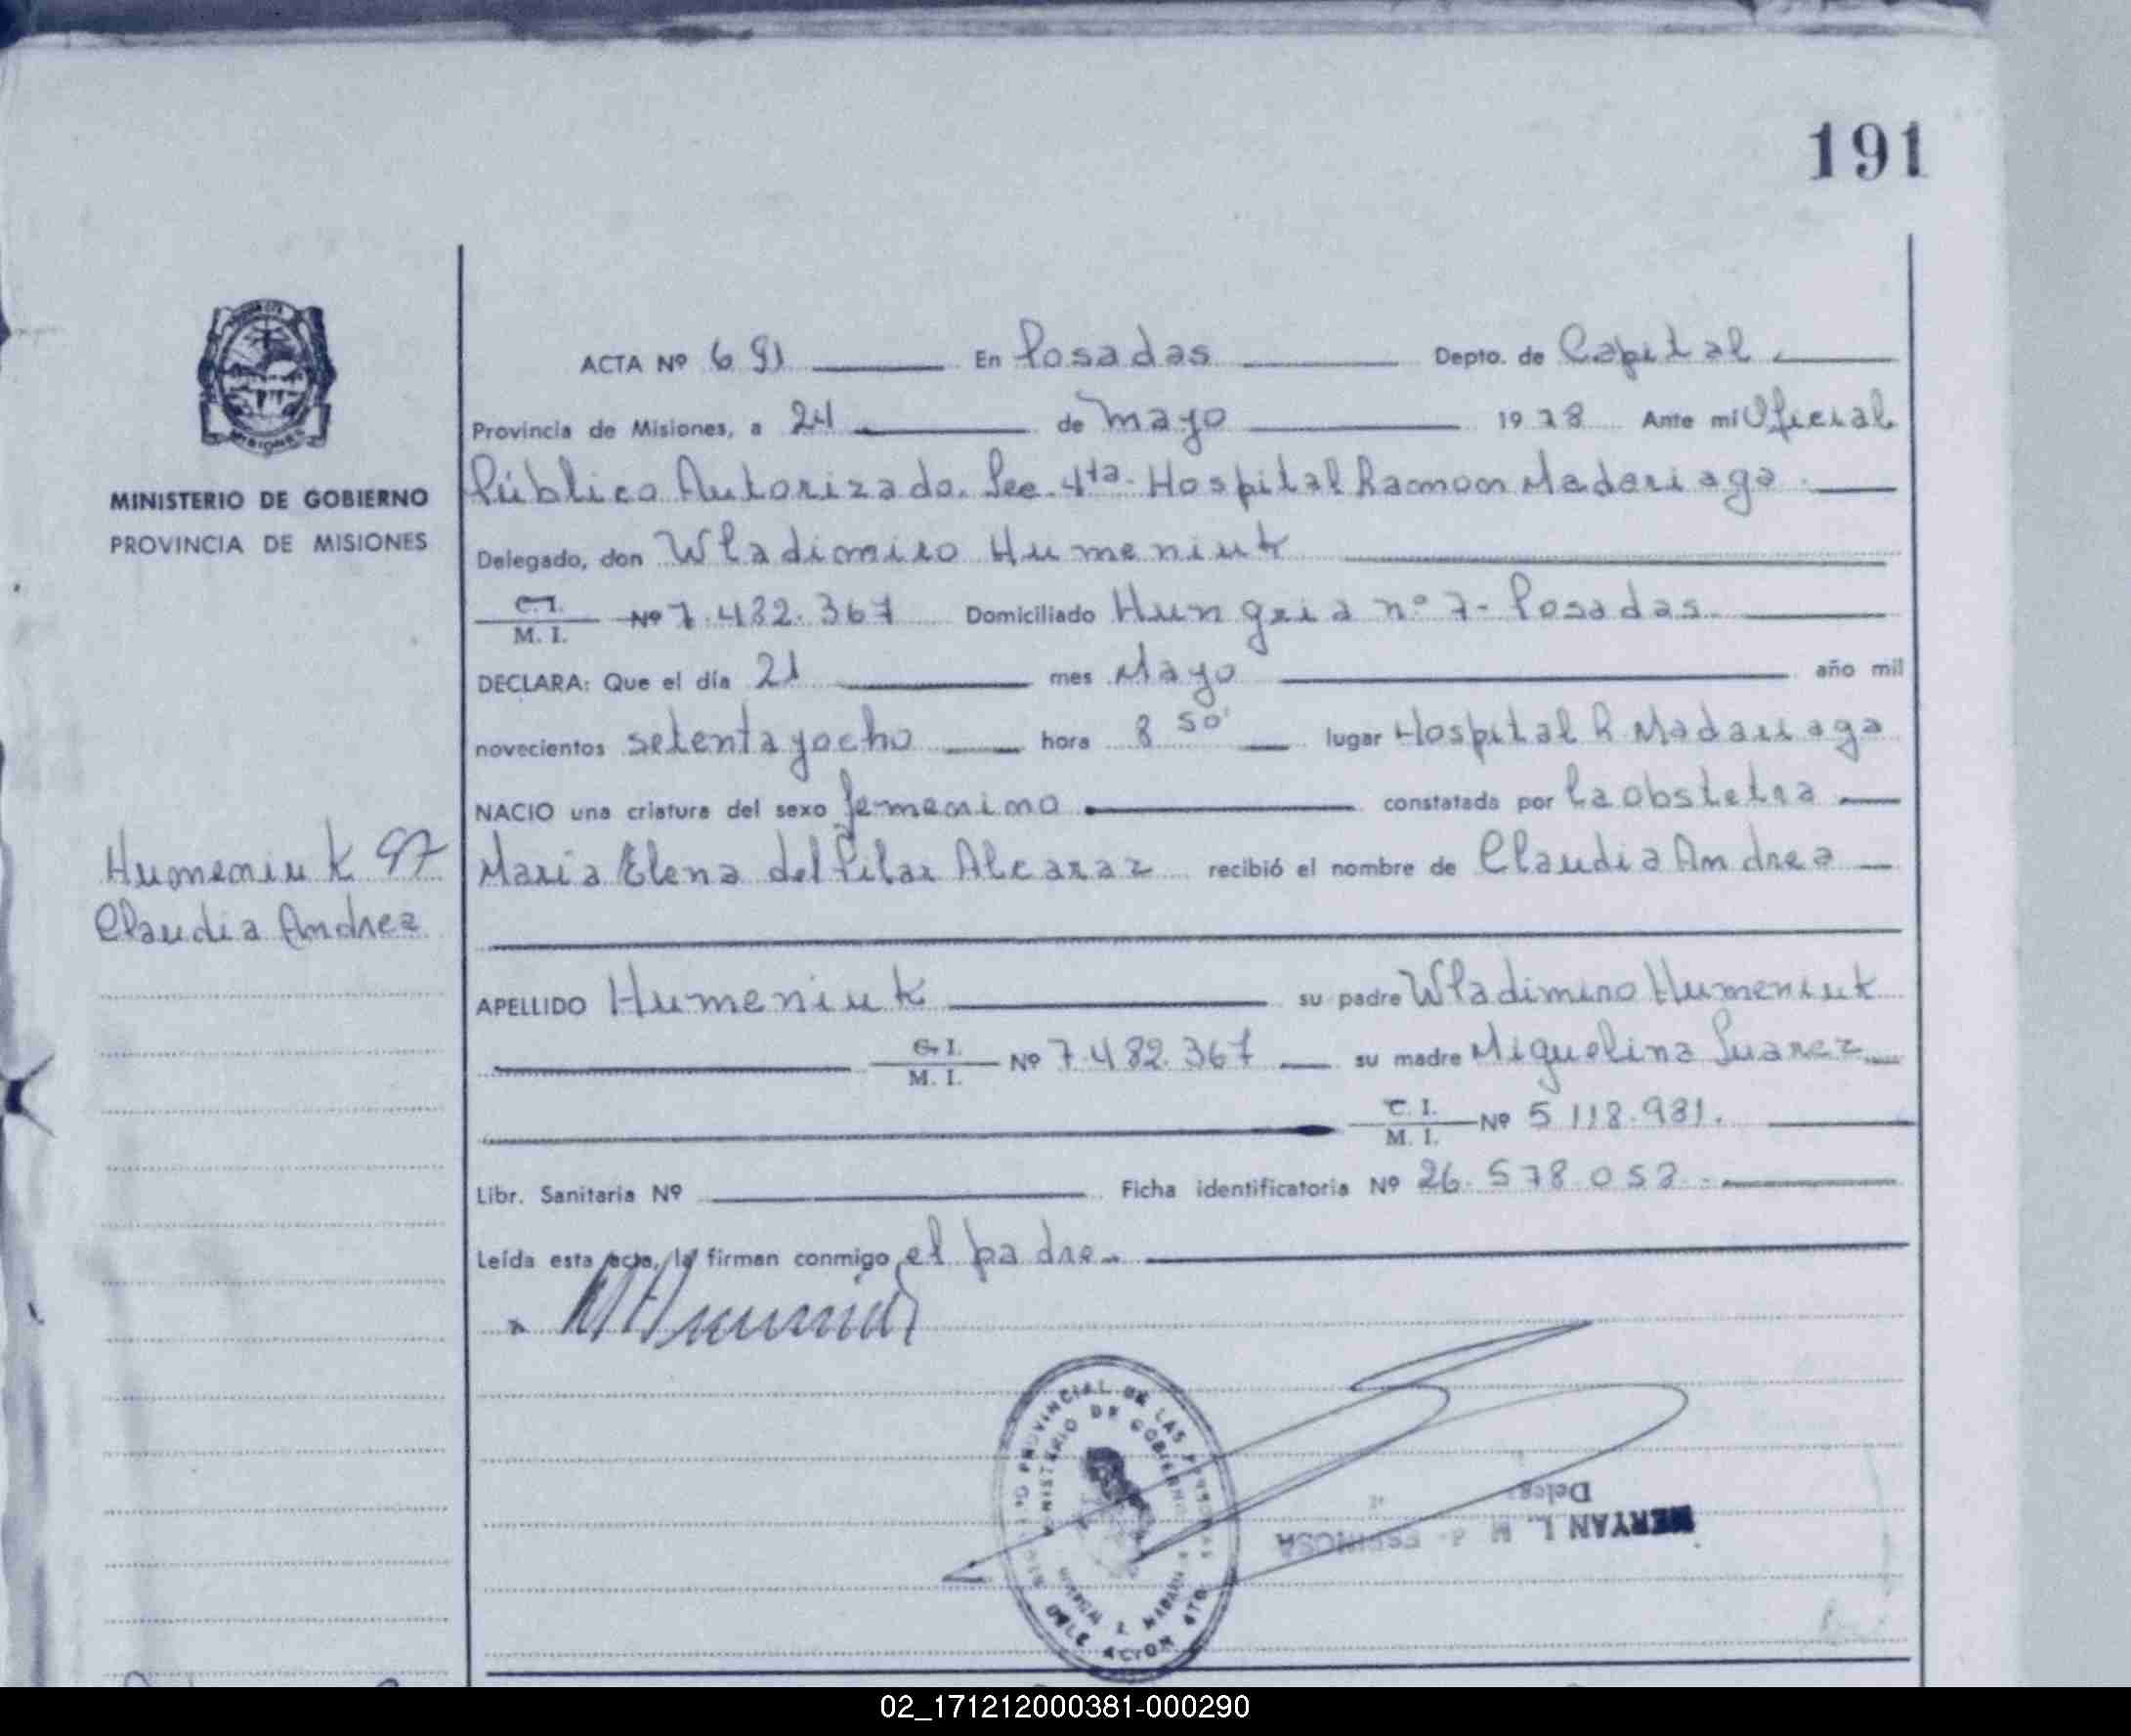 191
ACTA Nº 691 En Posadas Depto. de Capital
Provincia de Misiones, a 24 de mayo 1978 Ante mí Oficial
Público Autorizado. Sec. 4ta. Hospital Ramon Madariaga.
MINISTERIO DE GOBIERNO
PROVINCIA DE MISIONES
Delegado, don Wladimiro Humeniuk
C.I.
M. I. Nº 7.482.367 Domiciliado Hungria nº 7 - Posadas.
DECLARA: Que el día 21 mes Mayo año mil
novecientos setenta y ocho hora 8 50' lugar Hospital R Madariaga
NACIO una criatura del sexo femenino constatada por la obstetra
Humeniuk
Claudia Andrea
Maria Elena del Pilar Alcaraz recibió el nombre de Claudia Andrea
APELLIDO Humeniuk su padre Wladimiro Humeniuk
C. I.
M. I. Nº 7.482.367 su madre Miguelina Suarez
C. I.
M. I. Nº 5.118.981.
Libr. Sanitaria Nº Ficha identificatoria Nº 26.578.053.-
Leída esta acta, la firman conmigo el padre.
PROVINCIAL DE LAS PERSONAS
MINISTERIO DE GOBIERNO
MERYAN I. M. de ESPINOSA
02_171212000381-000290